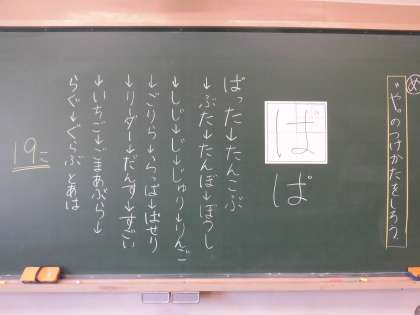 め
“や°のつけかたをしろう。
ば
ぱ
ばった↓たんこぶ
↓ぶた↓たんぼ↓ぼうし
↓しじ↓じ↓じゅり↓りんご
↓ごりら↓らっぱ↓ぱせり
↓りーダー↓だんす↓すごい
↓いちご↓ごまあぶら↓
らぐ↓ぐらぶ とあは
19こ